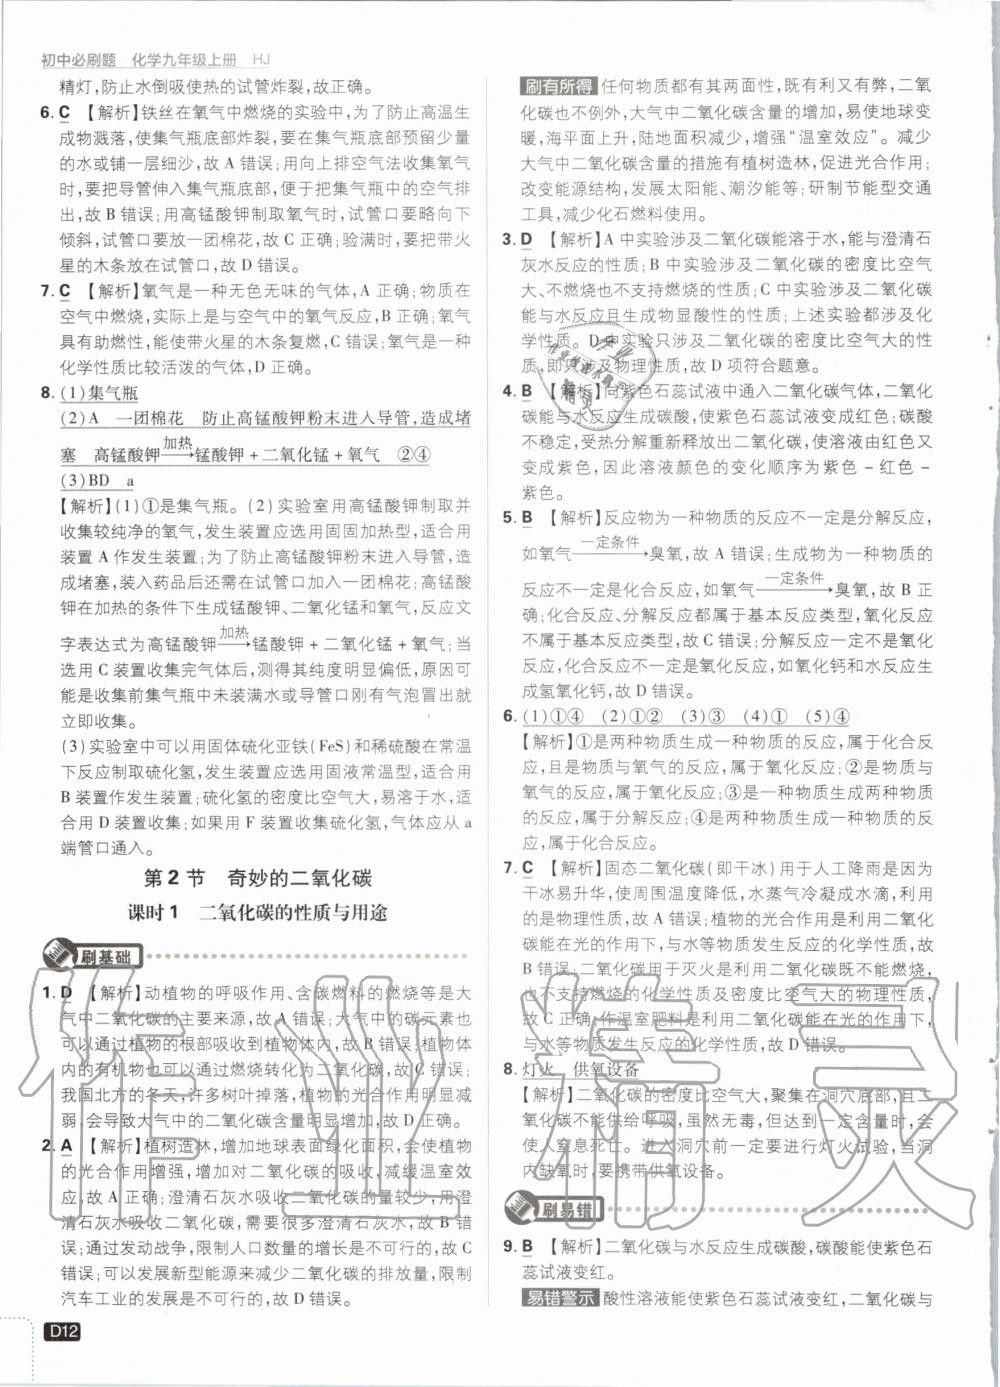 初中必刷题 化学九年级上册 HJ
精灯,防止水倒吸使热的试管炸裂,故正确。
6. C 【解析】铁丝在氧气中燃烧的实验中,为了防止高温生
成物溅落,使集气瓶底部炸裂,要在集气瓶底部预留少量
的水或铺一层细沙,故 A 错误;用向上排空气法收集氧气
时,要把导管伸入集气瓶底部,便于把集气瓶中的空气排
出,故 B 错误;用高锰酸钾制取氧气时,试管口要略向下
倾斜,试管口要放一团棉花,故 C 正确;验满时,要把带火
星的木条放在试管口,故 D 错误。
7. C 【解析】氧气是一种无色无味的气体,A 正确;物质在
空气中燃烧,实际上是与空气中的氧气反应,B 正确;氧气
具有助燃性,能使带火星的木条复燃,C 错误;氧气是一种
化学性质比较活泼的气体,D 正确。
8. (1)集气瓶
(2)A 一团棉花 防止高锰酸钾粉末进入导管,造成堵
塞 高锰酸钾 加热→ 锰酸钾+二氧化锰+氧气 ②④
(3)BD a
【解析】(1)①是集气瓶。(2)实验室用高锰酸钾制取并
收集较纯净的氧气,发生装置应选用固固加热型,适合用
装置 A 作发生装置;为了防止高锰酸钾粉末进入导管,造
成堵塞,装入药品后还需在试管口加入一团棉花;高锰酸
钾在加热的条件下生成锰酸钾、二氧化锰和氧气,反应文
字表达式为高锰酸钾 加热→ 锰酸钾+二氧化锰+氧气;当
选用 C 装置收集完气体后,测得其纯度明显偏低,原因可
能是收集前集气瓶中未装满水或导管口刚有气泡冒出就
立即收集。
(3)实验室中可以用固体硫化亚铁(FeS)和稀硫酸在常温
下反应制取硫化氢,发生装置应选用固液常温型,适合用
B 装置作发生装置;硫化氢的密度比空气大,易溶于水,适
合用 D 装置收集;如果用 F 装置收集硫化氢,气体应从 a
端管口通入。
第 2 节 奇妙的二氧化碳
课时 1 二氧化碳的性质与用途
刷基础
1. D 【解析】动植物的呼吸作用、含碳燃料的燃烧等是大
气中二氧化碳的主要来源,故 A 错误;大气中的碳元素也
可以通过植物的根部吸收到植物体内,故 B 错误;植物体
内的碳可以通过燃烧转化为二氧化碳,故 C 错误;
我国北方的冬天,许多树叶掉落,植物的光合作用明显减
弱,会导致大气中的二氧化碳含量明显增加,故 D 正确。
2. A 【解析】植树造林,增加地球表面绿化面积,会使植物
的光合作用增强,增加对二氧化碳的吸收,减缓温室效
应,故 A 正确;澄清石灰水吸收二氧化碳的量较少,用澄
清石灰水吸收二氧化碳,需要很多澄清石灰水,故 B 错
误;通过发动战争,限制人口数量的增长是不可行的,故 C
错误;可以发展新型能源来减少二氧化碳的排放量,限制
汽车工业的发展是不可行的,故 D 错误。
D12
刷有所得 任何物质都有其两面性,既有利又有弊,二氧
化碳也不例外,大气中二氧化碳含量的增加,易使地球变
暖,海平面上升,陆地面积减少,增强“温室效应”。减少
大气中二氧化碳含量的措施有植树造林,促进光合作用;
改变能源结构,发展太阳能、潮汐能等;研制节能型交通
工具,减少化石燃料使用。
3. D 【解析】A 中实验涉及二氧化碳能溶于水,能与澄清石
灰水反应的性质;B 中实验涉及二氧化碳的密度比空气
大、不燃烧也不支持燃烧的性质;C 中实验涉及二氧化碳
能与水反应且生成物显酸性的性质;上述实验都涉及化
学性质。D 中实验只涉及二氧化碳的密度比空气大的性
质,即只涉及物理性质,故 D 项符合题意。
4. B 【解析】向紫色石蕊试液中通入二氧化碳气体,二氧化
碳能与水反应生成碳酸,使紫色石蕊试液变成红色;碳酸
不稳定,受热分解重新释放出二氧化碳,使溶液由红色又
变成紫色,因此溶液颜色的变化顺序为紫色-红色-
紫色。
5. B 【解析】反应物为一种物质的反应不一定是分解反应,
如氧气 一定条件→ 臭氧,故 A 错误;生成物为一种物质的
反应不一定是化合反应,如氧气 一定条件→ 臭氧,故 B 正
确;化合反应、分解反应都属于基本反应类型,氧化反应
不属于基本反应类型,故 C 错误;分解反应一定不是氧化
反应,化合反应不一定是氧化反应,如氧化钙和水反应生
成氢氧化钙,故 D 错误。
6. (1)①④ (2)①② (3)③ (4)① (5)④
【解析】①是两种物质生成一种物质的反应,属于化合反
应,且是物质与氧气的反应,属于氧化反应;②是物质与
氧气的反应,属于氧化反应;③是一种物质生成两种物质
的反应,属于分解反应;④是两种物质生成一种物质的反
应,属于化合反应。
7. C 【解析】固态二氧化碳(即干冰)用于人工降雨是因为
干冰易升华,使周围温度降低,水蒸气冷凝成水滴,利用的
是物理性质,故 A 错误;植物的光合作用是利用二氧化
碳能在光的作用下,与水等物质发生反应的化学性质,故
B 错误;二氧化碳用于灭火是利用二氧化碳既不能燃烧,
也不支持燃烧的化学性质及密度比空气大的物理性质,
故 C 正确;作温室肥料是利用二氧化碳能在光的作用下,
与水等物质发生反应的化学性质,故 D 错误。
8. 灯火 供氧设备
【解析】二氧化碳的密度比空气大,聚集在洞穴底部,且二
氧化碳不能供给呼吸,虽然无毒,但达到一定含量时,会
使人窒息死亡。进入洞穴前一定要进行灯火试验,当洞
内缺氧时,要携带供氧设备。
刷易错
9. B 【解析】二氧化碳与水反应生成碳酸,碳酸能使紫色石
蕊试液变红。
易错警示 酸性溶液能使紫色石蕊试液变红,二氧化碳与
作业精灵